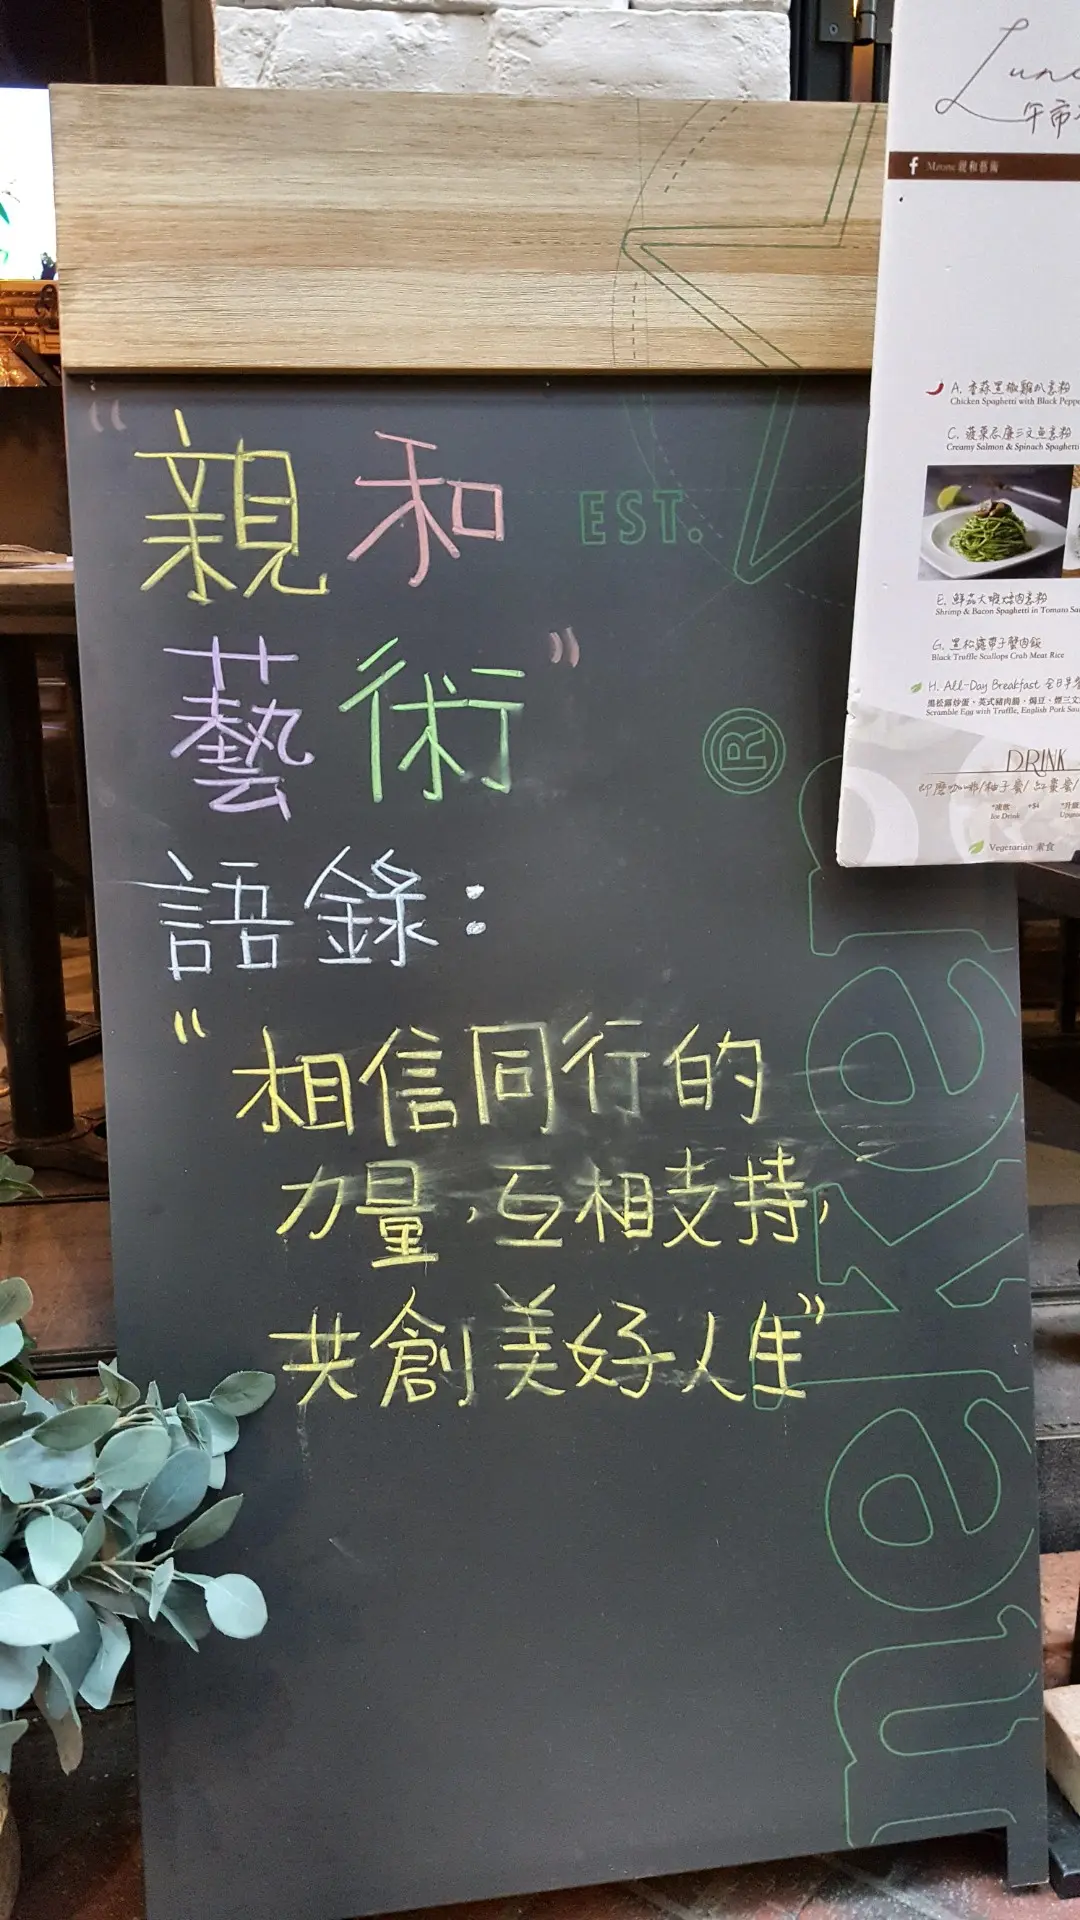 “親和
藝術”
語錄：
“相信同行的
力量，互相支持，
共創美好人生”
EST.
®
Heineken
Lun
午市
f Mavone 親和藝術
A. 香蒜黑椒雞扒意粉
Chicken Spaghetti with Black Pepp
C. 菠菜忌廉三文魚意粉
Creamy Salmon & Spinach Spaghetti
E. 鮮茄大蝦煙肉意粉
Shrimp & Bacon Spaghetti in Tomato Sa
G. 黑松露帶子蟹肉飯
Black Truffle Scallops Crab Meat Rice
H. All-Day Breakfast 全日早餐
黑松露炒蛋、英式豬肉腸、焗豆、煙三文
Scramble Egg with Truffle, English Pork Sau
DRINK
即磨咖啡/柚子蜜/紅棗蜜/
*凍飲 +$4
Ice Drink
*升級
Upgra
Vegetarian 素食